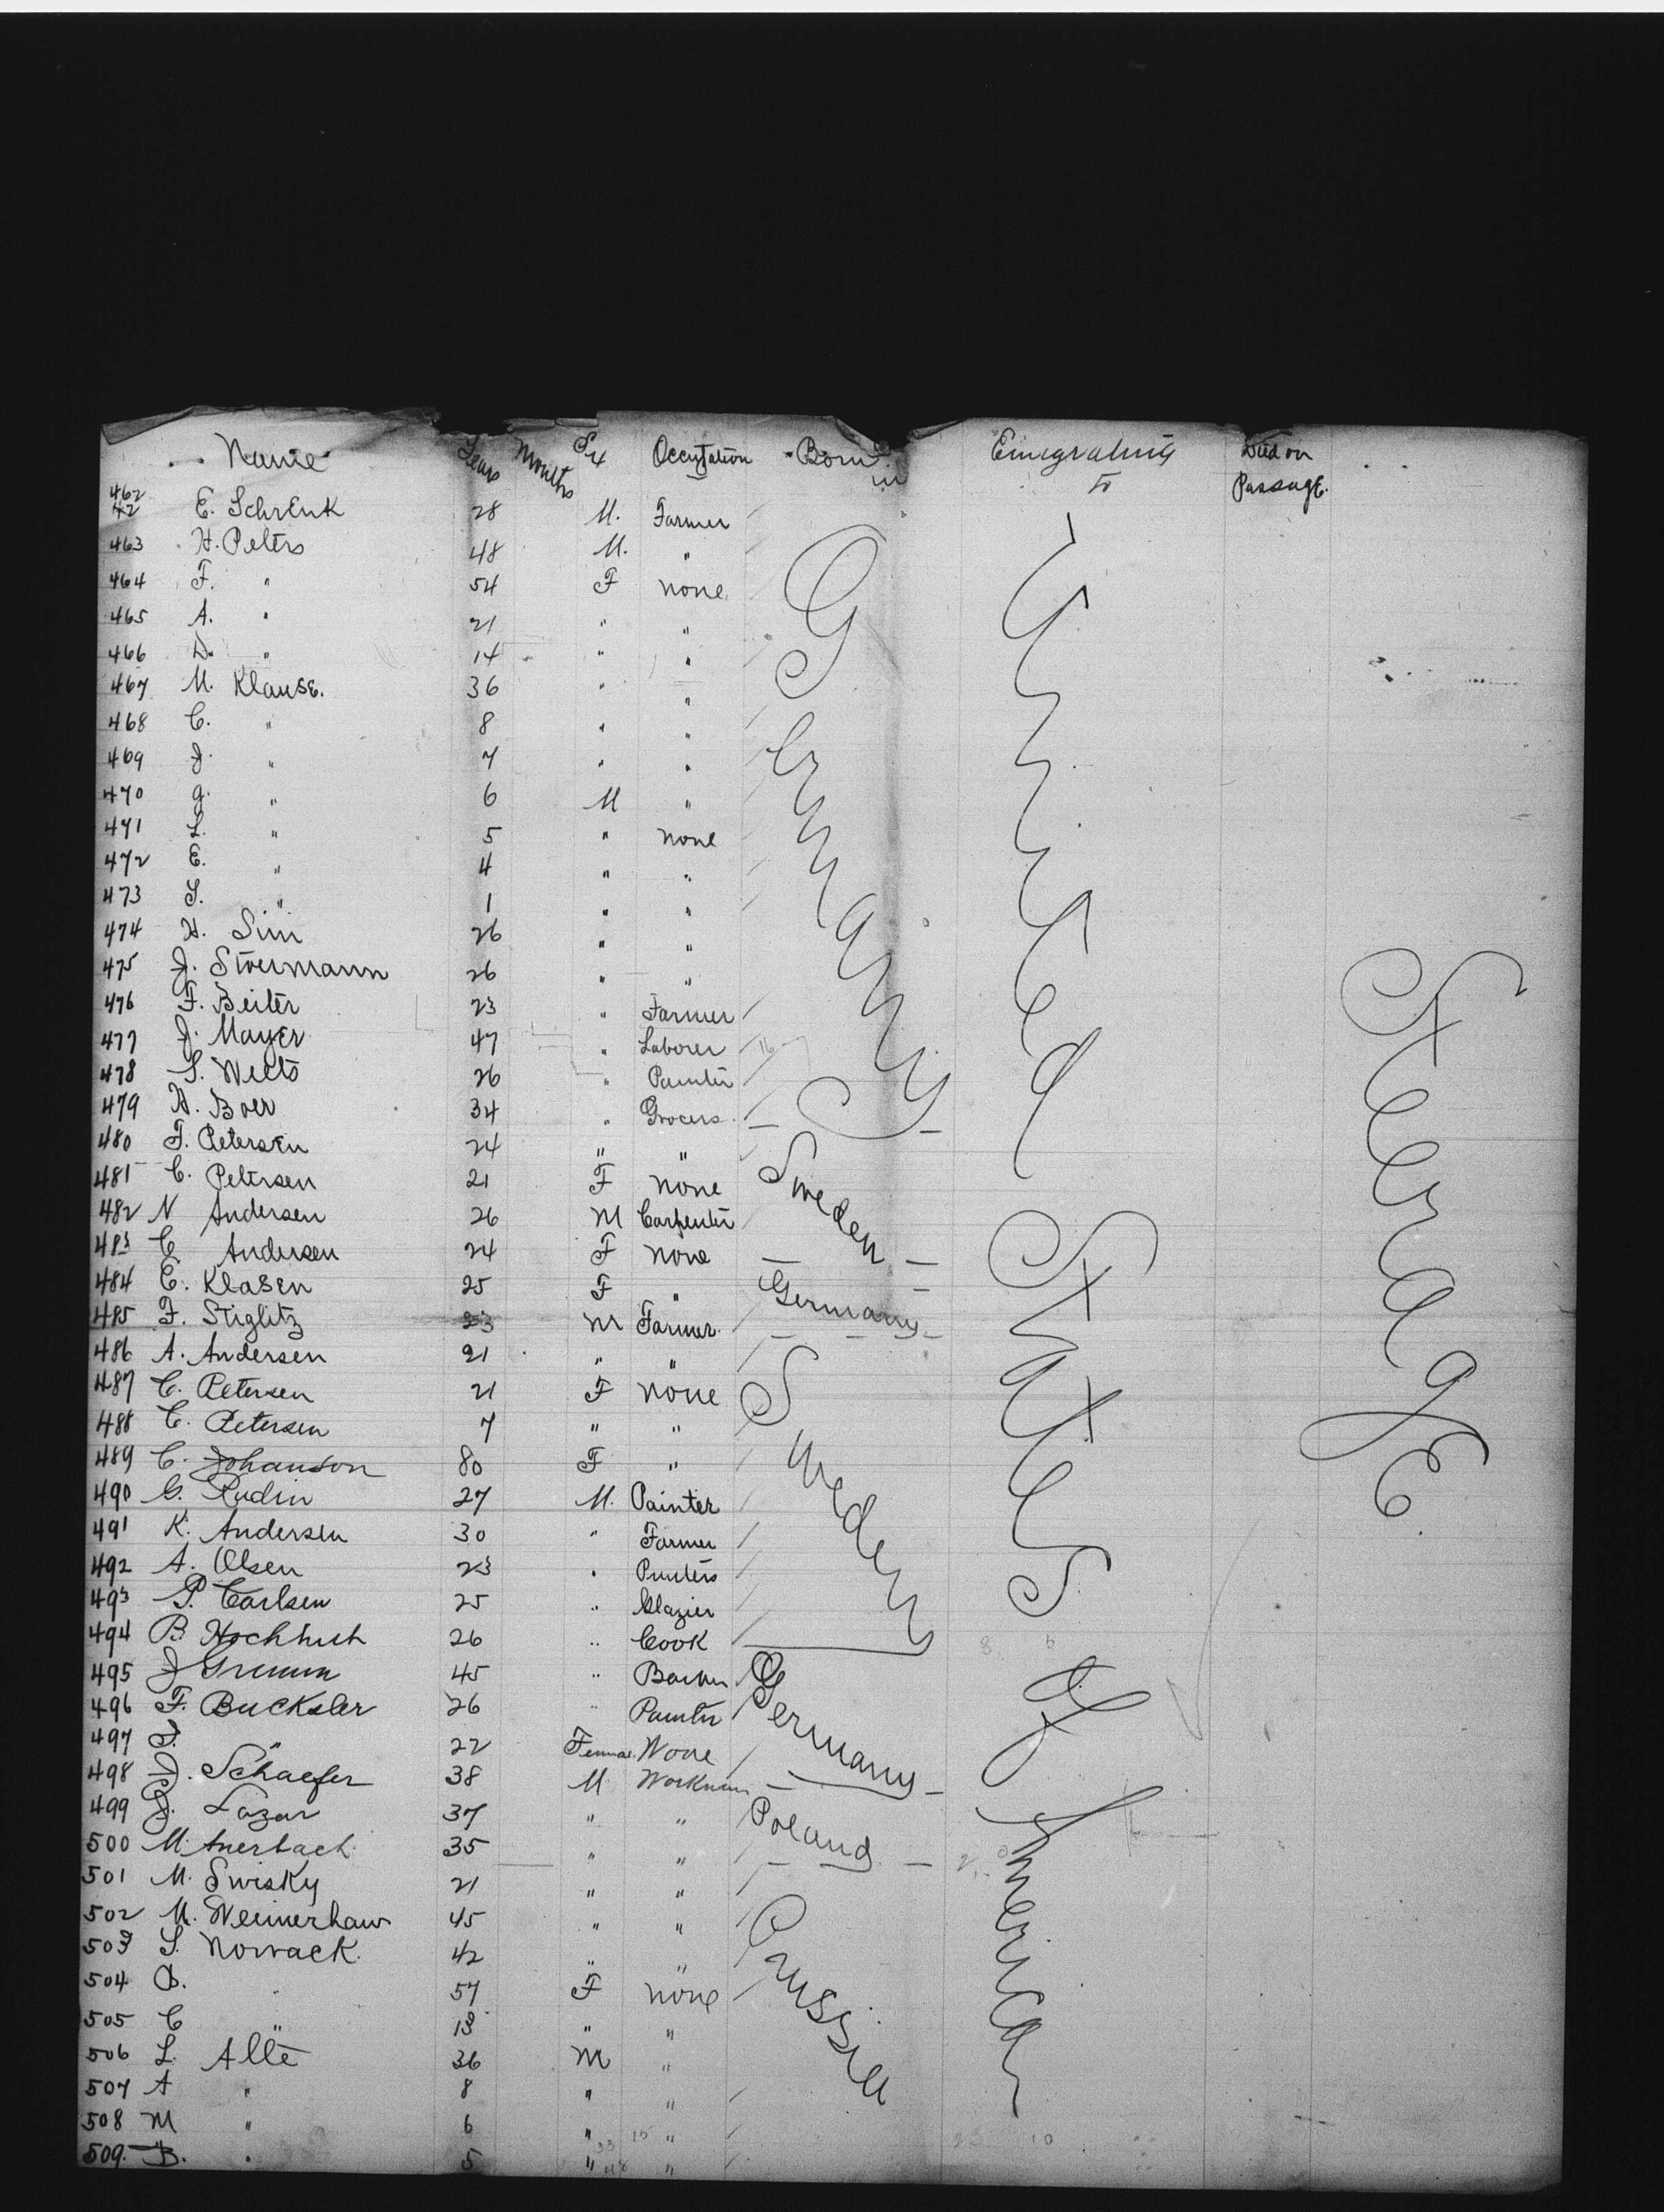 Name Years Months Sex Occupation Born in Emigrating to Died on Passage.
462 42 E. Schrenk 28 M. Farmer
463 H. Peters 48 M. "
464 F. " 54 F none
465 A. " 21 " "
466 D. " 14 " "
467 M. Klause. 36 " "
468 C. " 8 " "
469 J. " 7 " "
470 g. " 6 M "
471 L. " 5 " none
472 E. " 4 " "
473 S. " 1 " "
474 H. Sim 26 " "
475 J. Stoermann 26 " "
476 F. Beiter 23 " Farmer
477 J. Mayer 47 " Laborer
478 S. 26 " Painter
479 H. Boer 34 " Grocers
Germany
480 F. Petersen 24 " "
481 C. Petersen 21 F none
482 N Andersen 26 M Carpenter
483 C Andersen 24 F none
Sweden
484 C. Klasen 25 F "
485 F. Stiglitz 23 M Farmer
Germany
486 A. Andersen 21 " "
487 C. Petersen 21 F none
488 C. Petersen 7 " "
489 C. Johanson 80 F "
490 G. Rudin 27 M. Painter
491 K. Andersen 30 " Farmer
492 A. Olsen 23 "
493 P. Carlsen 25 " Glazier
494 B. 26 " Cook
Sweden
495 J Grimm 45 "
496 F. Bucksler 26 " Painter
497 " 22 None
498 J. Schaefer 38 M Workman
Germany
499 J. Lazar 37 " "
500 M. Auerbach 35 " "
Poland
501 M. Swisky 21 " "
502 M. 45 " "
503 S. Nowack. 42 " "
504 " 57 F none
505 C " 13 " "
506 L. Alte 36 M "
507 A " 8 " "
508 M " 6 " "
509. B. " 5 " "
Prussia
United States of America
SteeragE